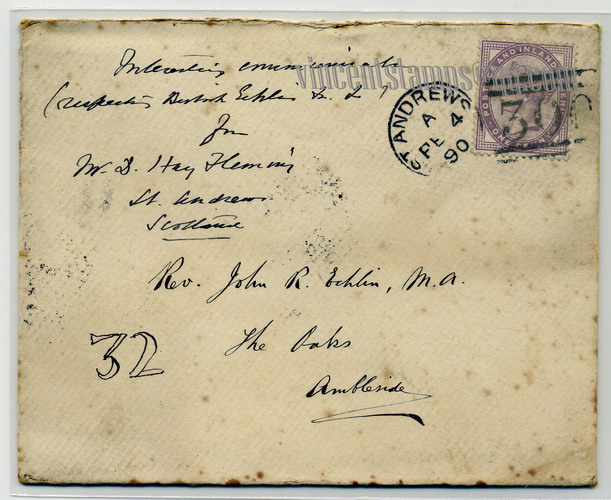 Interesting communication
(respecting British Echlins &c. &c.)
from
Mr. D. Hay Fleming
St. Andrews
Scotland
vincentstamps
ST ANDREWS
A
FE 4
90
POSTAGE AND INLAND
ONE PENNY
30
Rev. John R. Echlin, M.A.
The Oaks
Ambleside
32